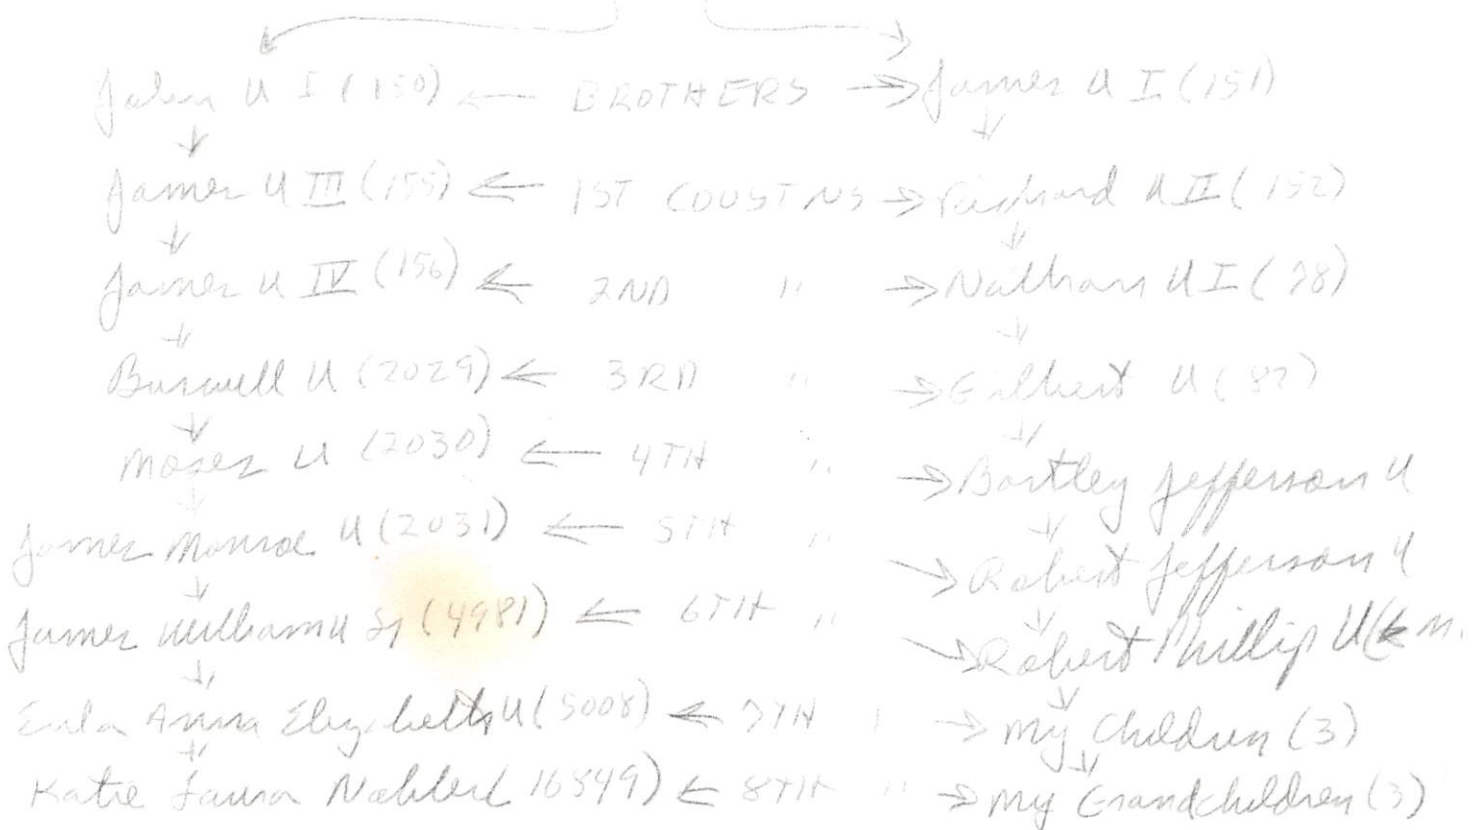 John U I (150) ← BROTHERS → James U I (151)
James U III (155) ← 1ST COUSINS → Richard U II (152)
James U IV (156) ← 2ND " → Nathan U I (78)
Burwell U (2029) ← 3RD " → Gilbert U (87)
Moses U (2030) ← 4TH " → Bartley Jefferson U
James Monroe U (2031) ← 5TH " → Robert Jefferson U
James William U Sr (4981) ← 6TH " → Robert Phillip U
Eula Anna Elizabeth U (5008) ← 7TH " → My Children (3)
Katie Laura (16849) ← 8TH " → My Grandchildren (3)